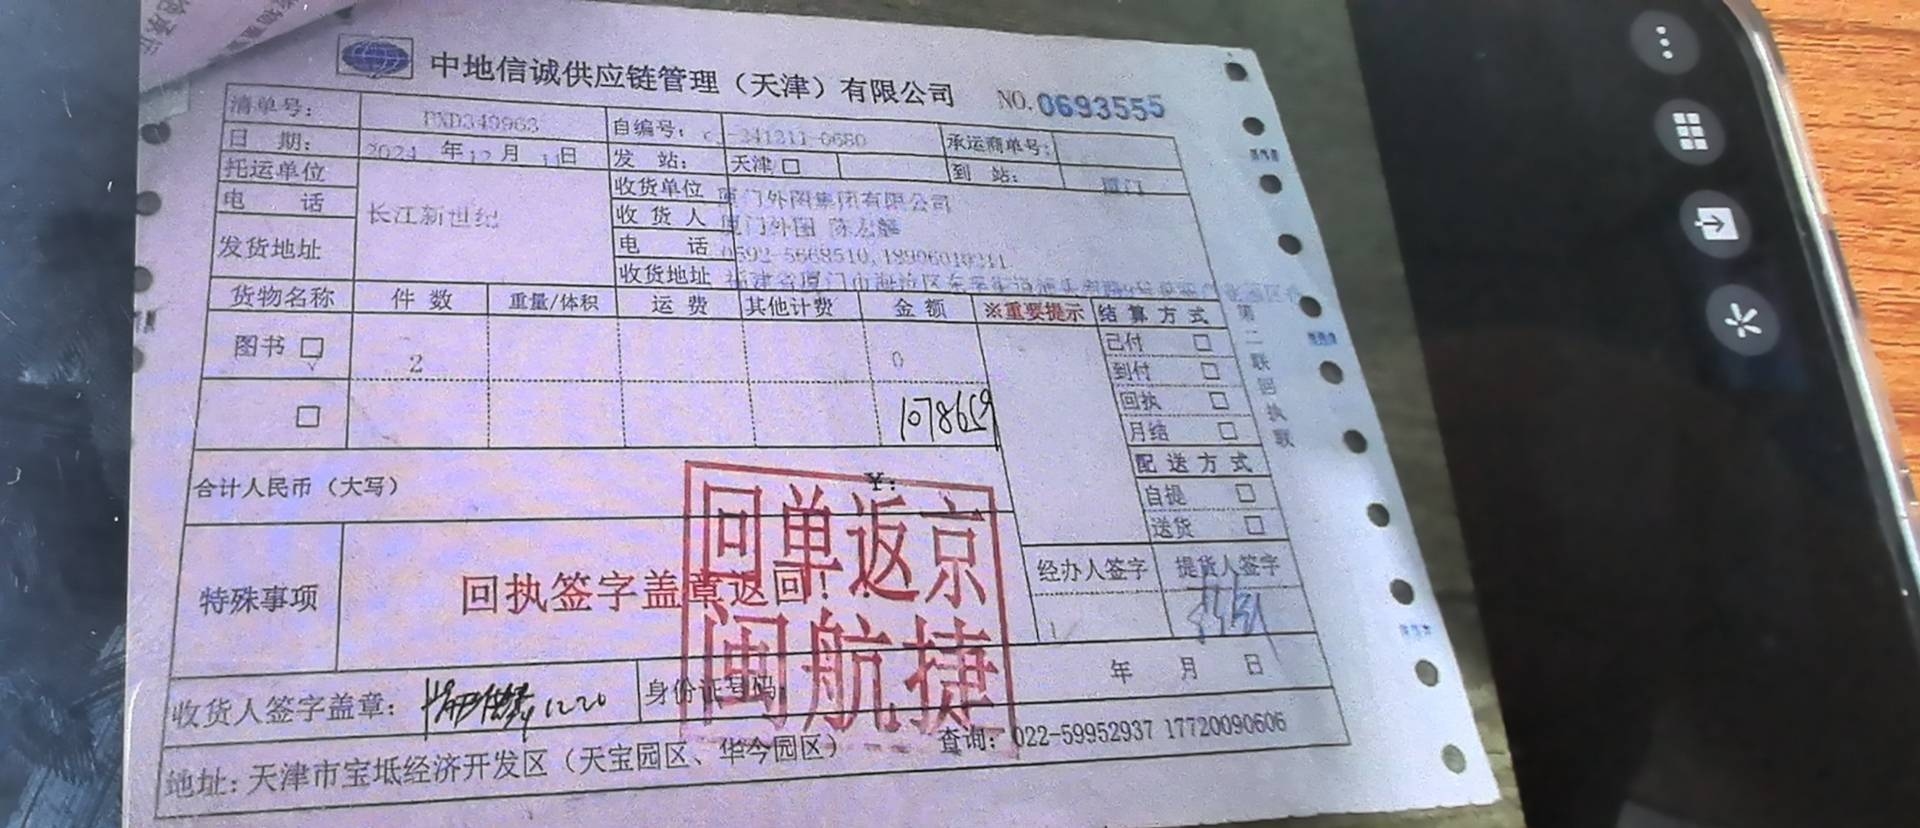 中地信诚供应链管理（天津）有限公司 NO. 0693555
清单号： 自编号： -341211-0680 承运商单号：
日 期： 2024 年 12 月 11 日 发 站： 天津 □ 到 站： 厦门
托运单位 长江新世纪 收货单位 厦门外图集团有限公司
电 话 收 货 人 厦门外图
发货地址 电 话 0592-5668510,
收货地址 福建省厦门市海沧区
货物名称 件 数 重量/体积 运 费 其他计费 金 额 ※重要提示 结 算 方 式
图书 □ 2 0 已付 □
到付 □
□ 1078659 回执 □
月结 □
配 送 方 式
合计人民币（大写） ￥： 自提 □
送货 □
第二联回执联
特殊事项 回执签字盖章返回！ 经办人签字 提货人签字
回单返京
闽航捷
收货人签字盖章： 12.20 身份证号码： 年 月 日
地址：天津市宝坻经济开发区（天宝园区、华今园区） 查询： 022-59952937 17720090606